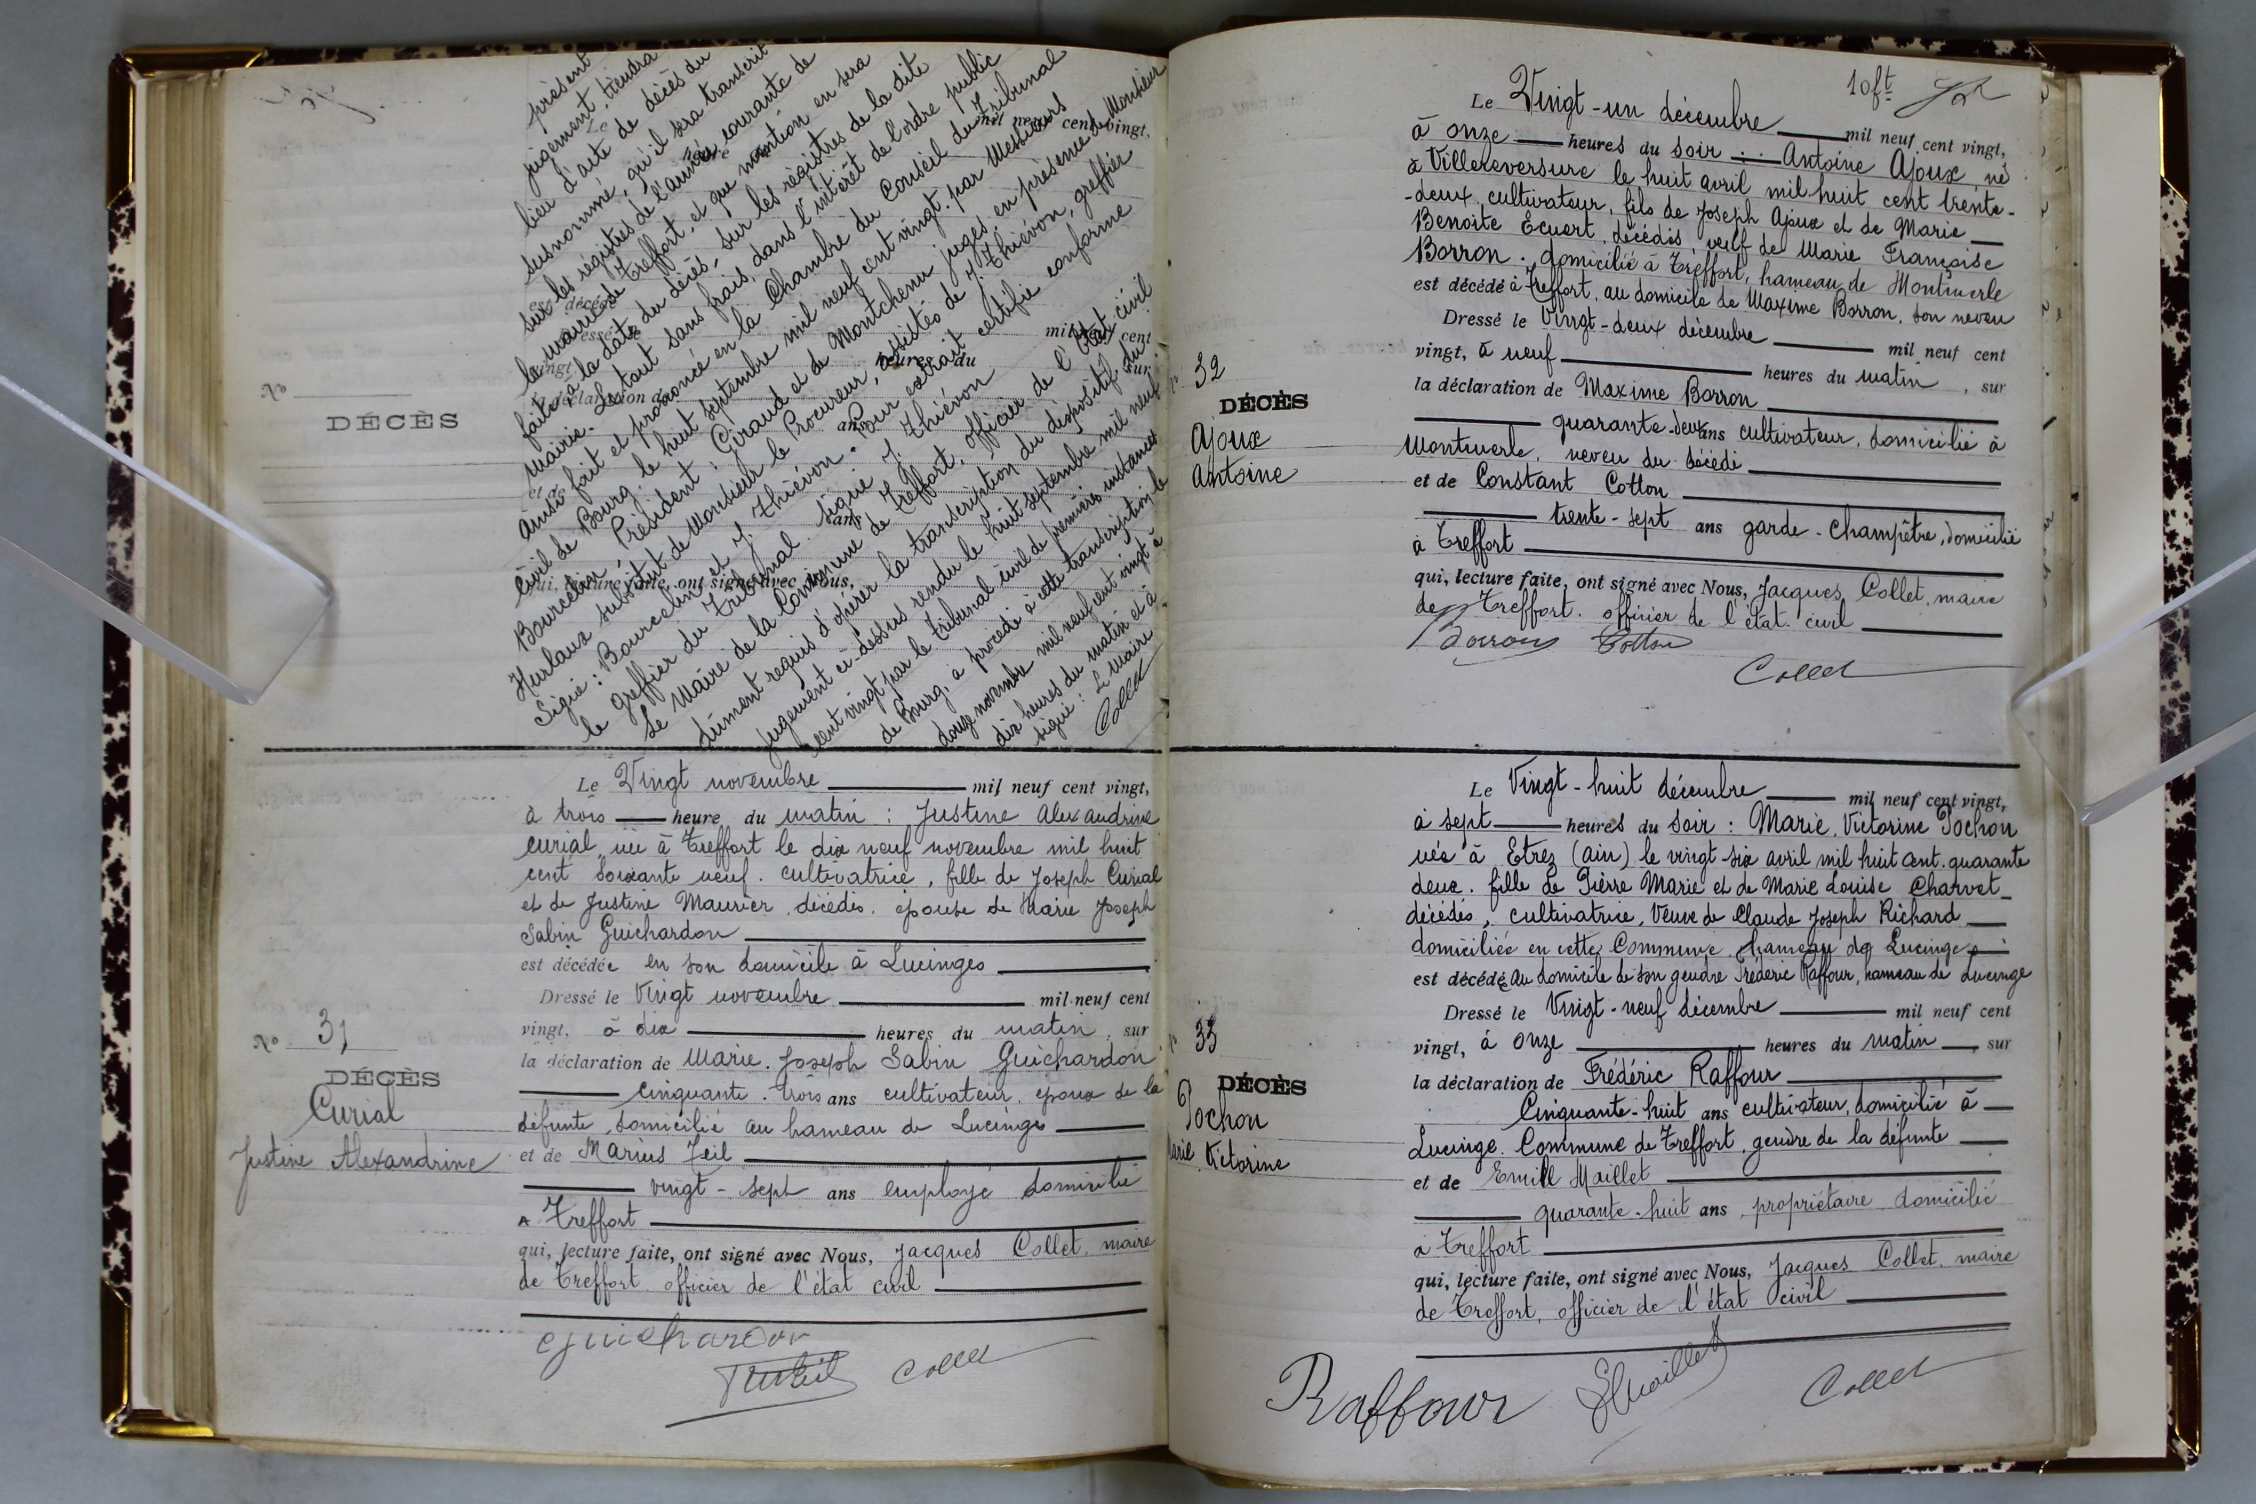 présent
jugement, tiendra
lieu d'acte de décès du
susnommé, qu'il sera transcrit
sur les régistres de l'année courante de
la mairie de Treffort, et que mention en sera
faite à la date du décès, sur les régistres de la dite
Mairie. Le tout sans frais, dans l'intérêt de l'ordre public
Ainsi fait et prononcé en la Chambre du Conseil du Tribunal
Civil de Bourg, le huit septembre mil neuf cent vingt, par Messieurs
Bourcelin, Président, Giraud et de Montchenu juges, en présence de Monsieur
Hurlaux substitut de Monsieur le Procureur, assistés de J. Thiévon, greffier
Signé : Bourcelin et J. Thiévon. Pour extrait certifié conforme
le greffier du Tribunal. Signé : J. Thiévon
Le Maire de la Commune de Treffort, officier de l'état civil
dûment requis d'opérer la transcription du dispositif du
jugement ci-dessus rendu le huit septembre mil neuf
cent vingt par le Tribunal civil de première instance
de Bourg, a procédé à cette transcription le
douze novembre mil neuf cent vingt à
dix heures du matin et à
signé : Le Maire
Collet
Le mil neuf cent vingt,
est décédé
mil neuf cent
vingt heures du sur
la déclaration de
ans
et de
ans
qui, lecture faite, ont signé avec Nous,
No
DÉCÈS
Le Vingt novembre mil neuf cent vingt,
à trois heure du matin : Justine Alexandrine
Curial, née à Treffort le dix neuf novembre mil huit
cent soixante neuf. cultivatrice, fille de Joseph Curial
et de Justine Maurier, décédés. épouse de Marie Joseph
Sabin Guichardon
est décédée en son domicile à Lucinges
Dressé le Vingt novembre mil neuf cent
vingt, à dix heures du matin, sur
la déclaration de Marie. Joseph Sabin Guichardon
cinquante. trois ans cultivateur, époux de la
défunte, domicilié au hameau de Lucinge
et de Marius Teil
vingt-sept ans employé domicilié
A Treffort
qui, lecture faite, ont signé avec Nous, Jacques Collet, maire
de Treffort officier de l'état civil
Guichardon
Collet
No 31
DÉCÈS
Curial
Justine Alexandrine
10ft
Le Vingt-un décembre mil neuf cent vingt,
à onze heures du soir : Antoine Ajoux, né
à Villereversure le huit avril mil huit cent trente-
-deux, cultivateur, fils de Joseph Ajoux et de Marie
Benoite Ecuert, décédés, veuf de Marie Françoise
Borron. domicilié à Treffort, hameau de Montmerle
est décédé à Treffort, au domicile de Maxime Borron, son neveu
Dressé le Vingt-deux décembre mil neuf cent
vingt, à neuf heures du matin, sur
la déclaration de Maxime Borron
quarante-deux ans cultivateur, domicilié à
Montmerle, neveu du décédé
et de Constant Cotton
trente-sept ans garde-champêtre, domicilié
à Treffort
qui, lecture faite, ont signé avec Nous, Jacques Collet, maire
de Treffort. officier de l'état civil
Borron Cotton
Collet
32
DÉCÈS
Ajoux
Antoine
Le Vingt-huit décembre mil neuf cent vingt,
à sept heures du soir : Marie. Victorine Pochon
née à Etrez (ain) le vingt-six avril mil huit cent. quarante
deux. fille de Pierre Marie et de Marie Louise Charvet
décédés, cultivatrice, Veuve de Claude Joseph Richard
domiciliée en cette Commune, hameau de Lucinge
est décédée au domicile de son gendre Frédéric Raffour, hameau de Lucinge
Dressé le Vingt-neuf décembre mil neuf cent
vingt, à onze heures du matin, sur
la déclaration de Frédéric Raffour
Cinquante-huit ans cultivateur, domicilié à
Lucinge. Commune de Treffort, gendre de la défunte
et de Emile Maillet
quarante-huit ans, propriétaire domicilié
à Treffort
qui, lecture faite, ont signé avec Nous, Jacques Collet, maire
de Treffort, officier de l'état civil
Raffour EMaillet Collet
33
DÉCÈS
Pochon
Marie Victorine